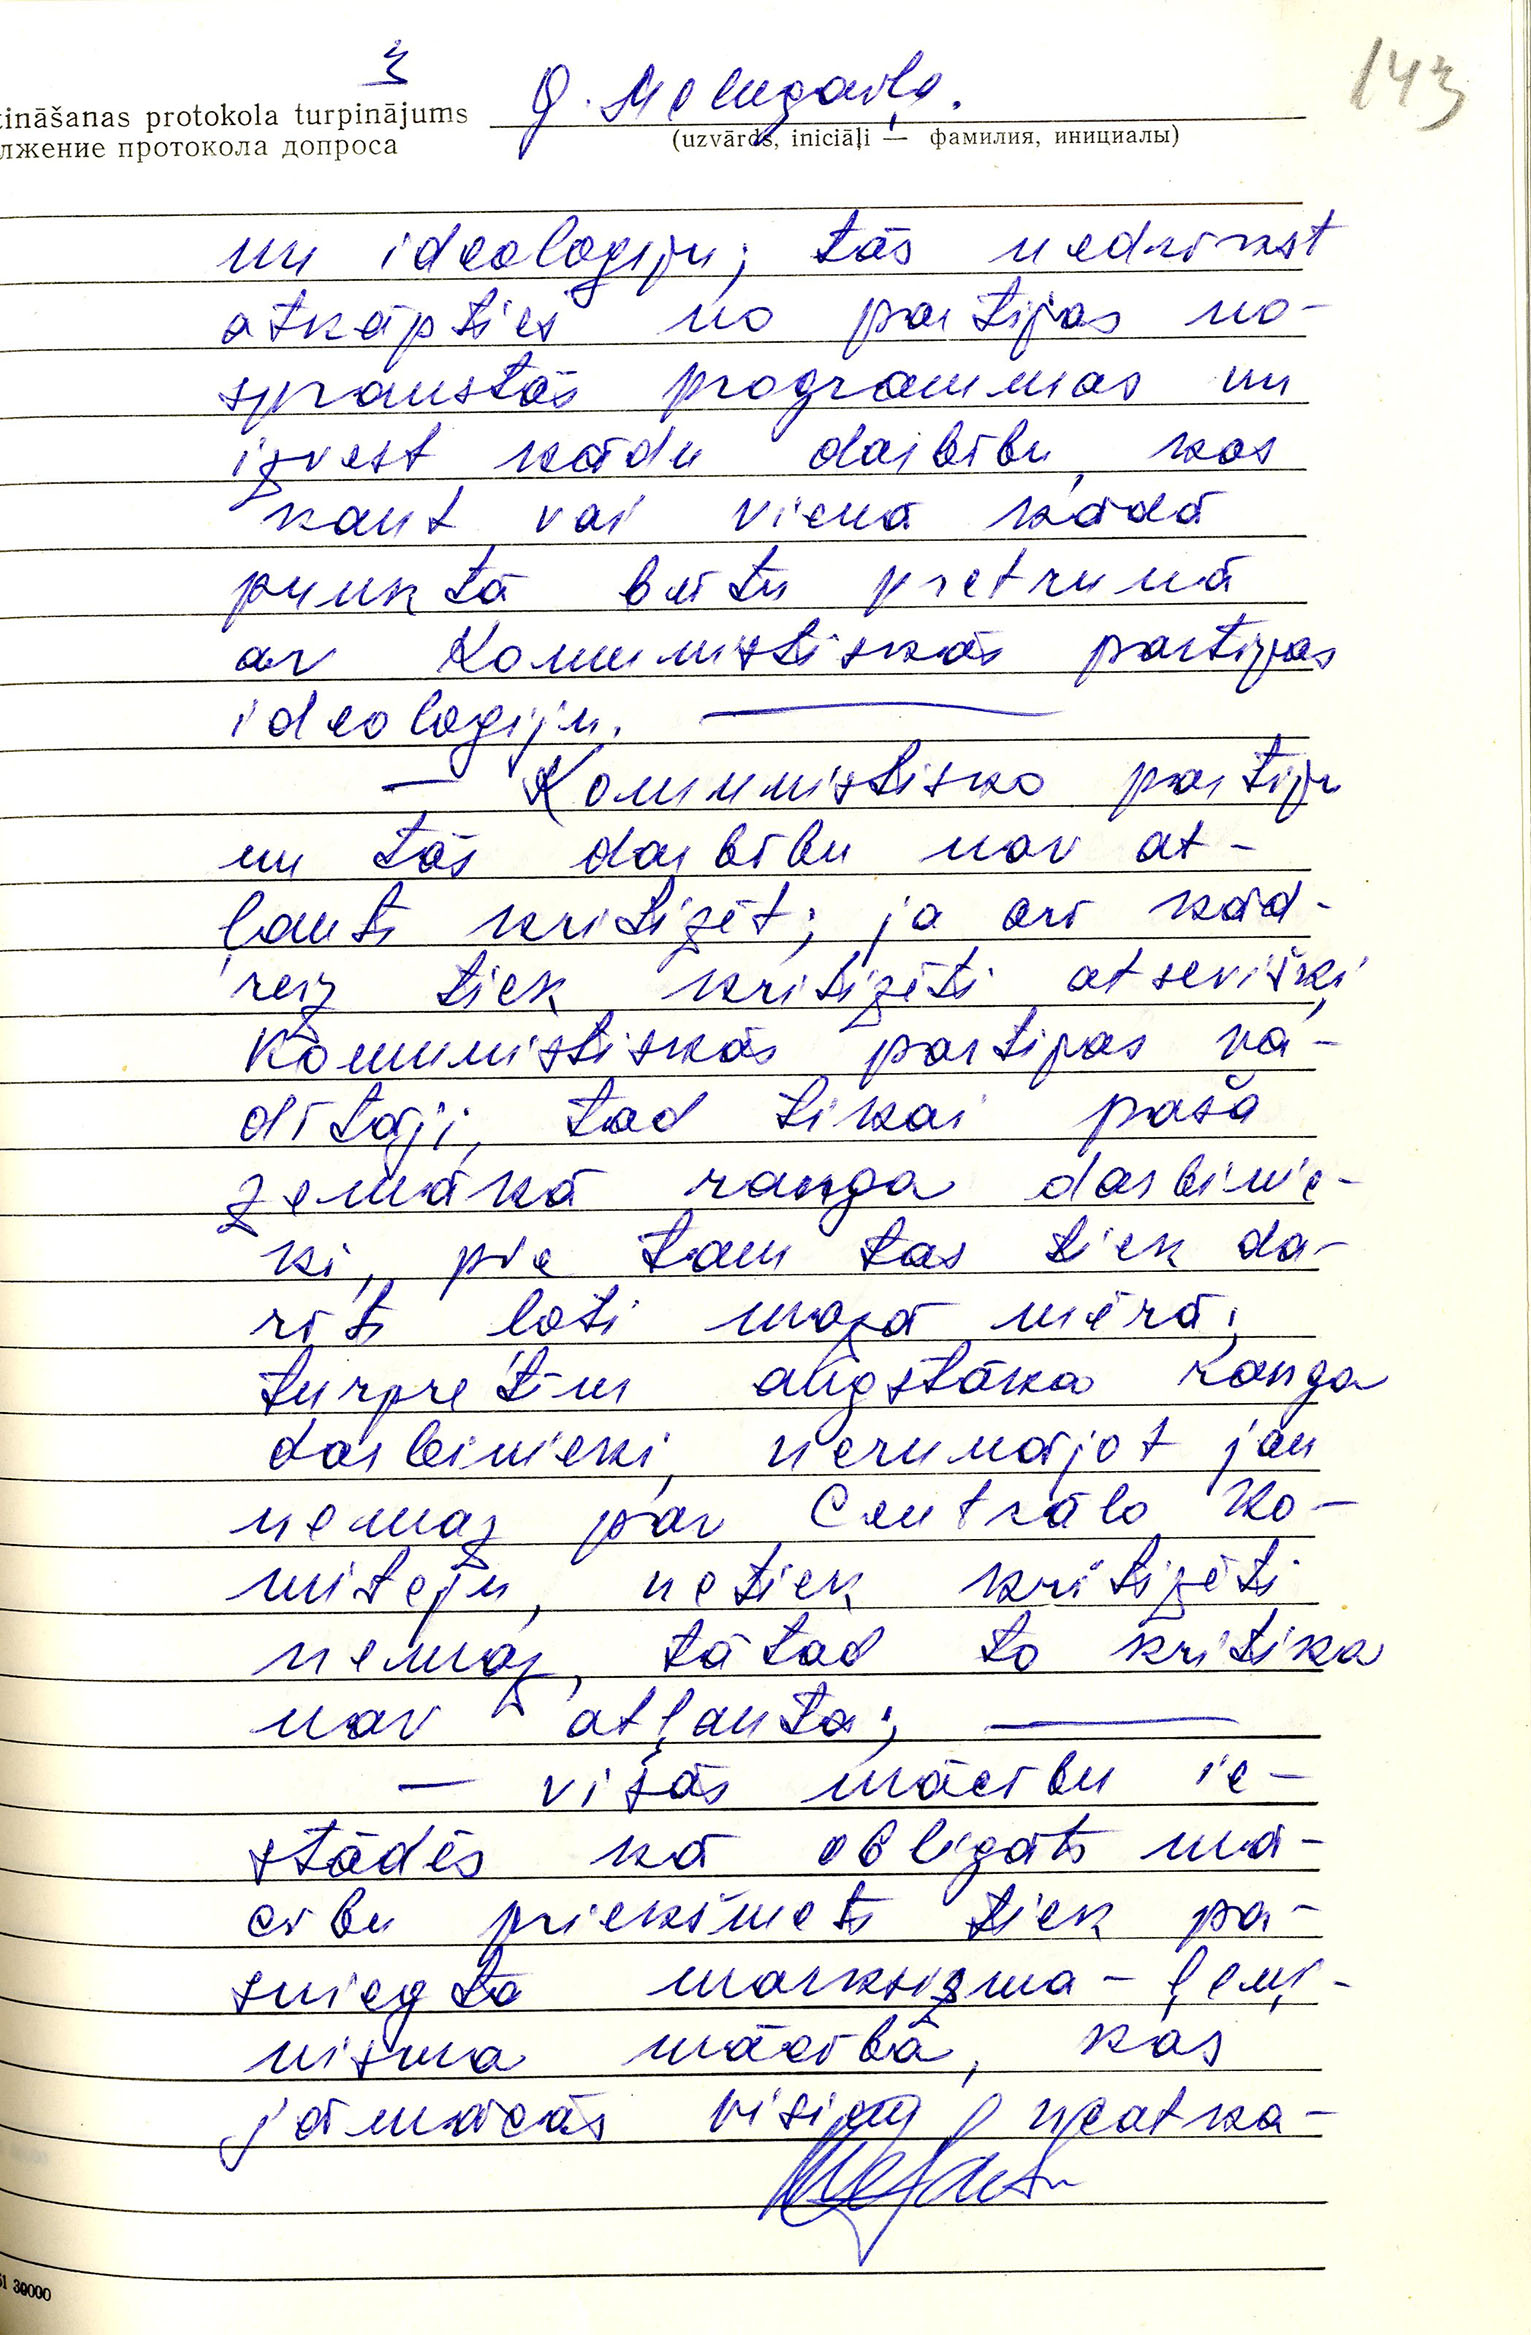 3
143
tināšanas protokola turpinājums
лжение протокола допроса
(uzvārds, iniciāļi — фамилия, инициалы)
un ideologiju; tās nedrīkst
atkāpties no partijas no-
spraustās programmas un
izvest kādu darbību, kas
kaut vai vienā kādā
punktā būtu pretrunā
ar Komunistiskās partijas
ideologiju.
— Komunistisko partiju
un tās darbību nav at-
ļauts kritizēt; ja arī kād-
reiz tiek kritizēti atsevišķi
Komunistiskās partijas va-
dītāji, tad tikai paša
zemākā ranga darbinie-
ki, pie tam tas tiek da-
rīts ļoti mazā mērā;
turpretim augstāka ranga
darbinieki, nerunājot jau
nemaz par Centrālo Ko-
miteju, netiek kritizēti
nemaz, tātad to kritika
nav atļauta;
— visās mācību ie-
stādēs kā obligāts mā-
cību priekšmets tiek pa-
sniegta marksizma - ļeņi-
nisma mācība, kas
jāmācās visiem neatka-
51 30000